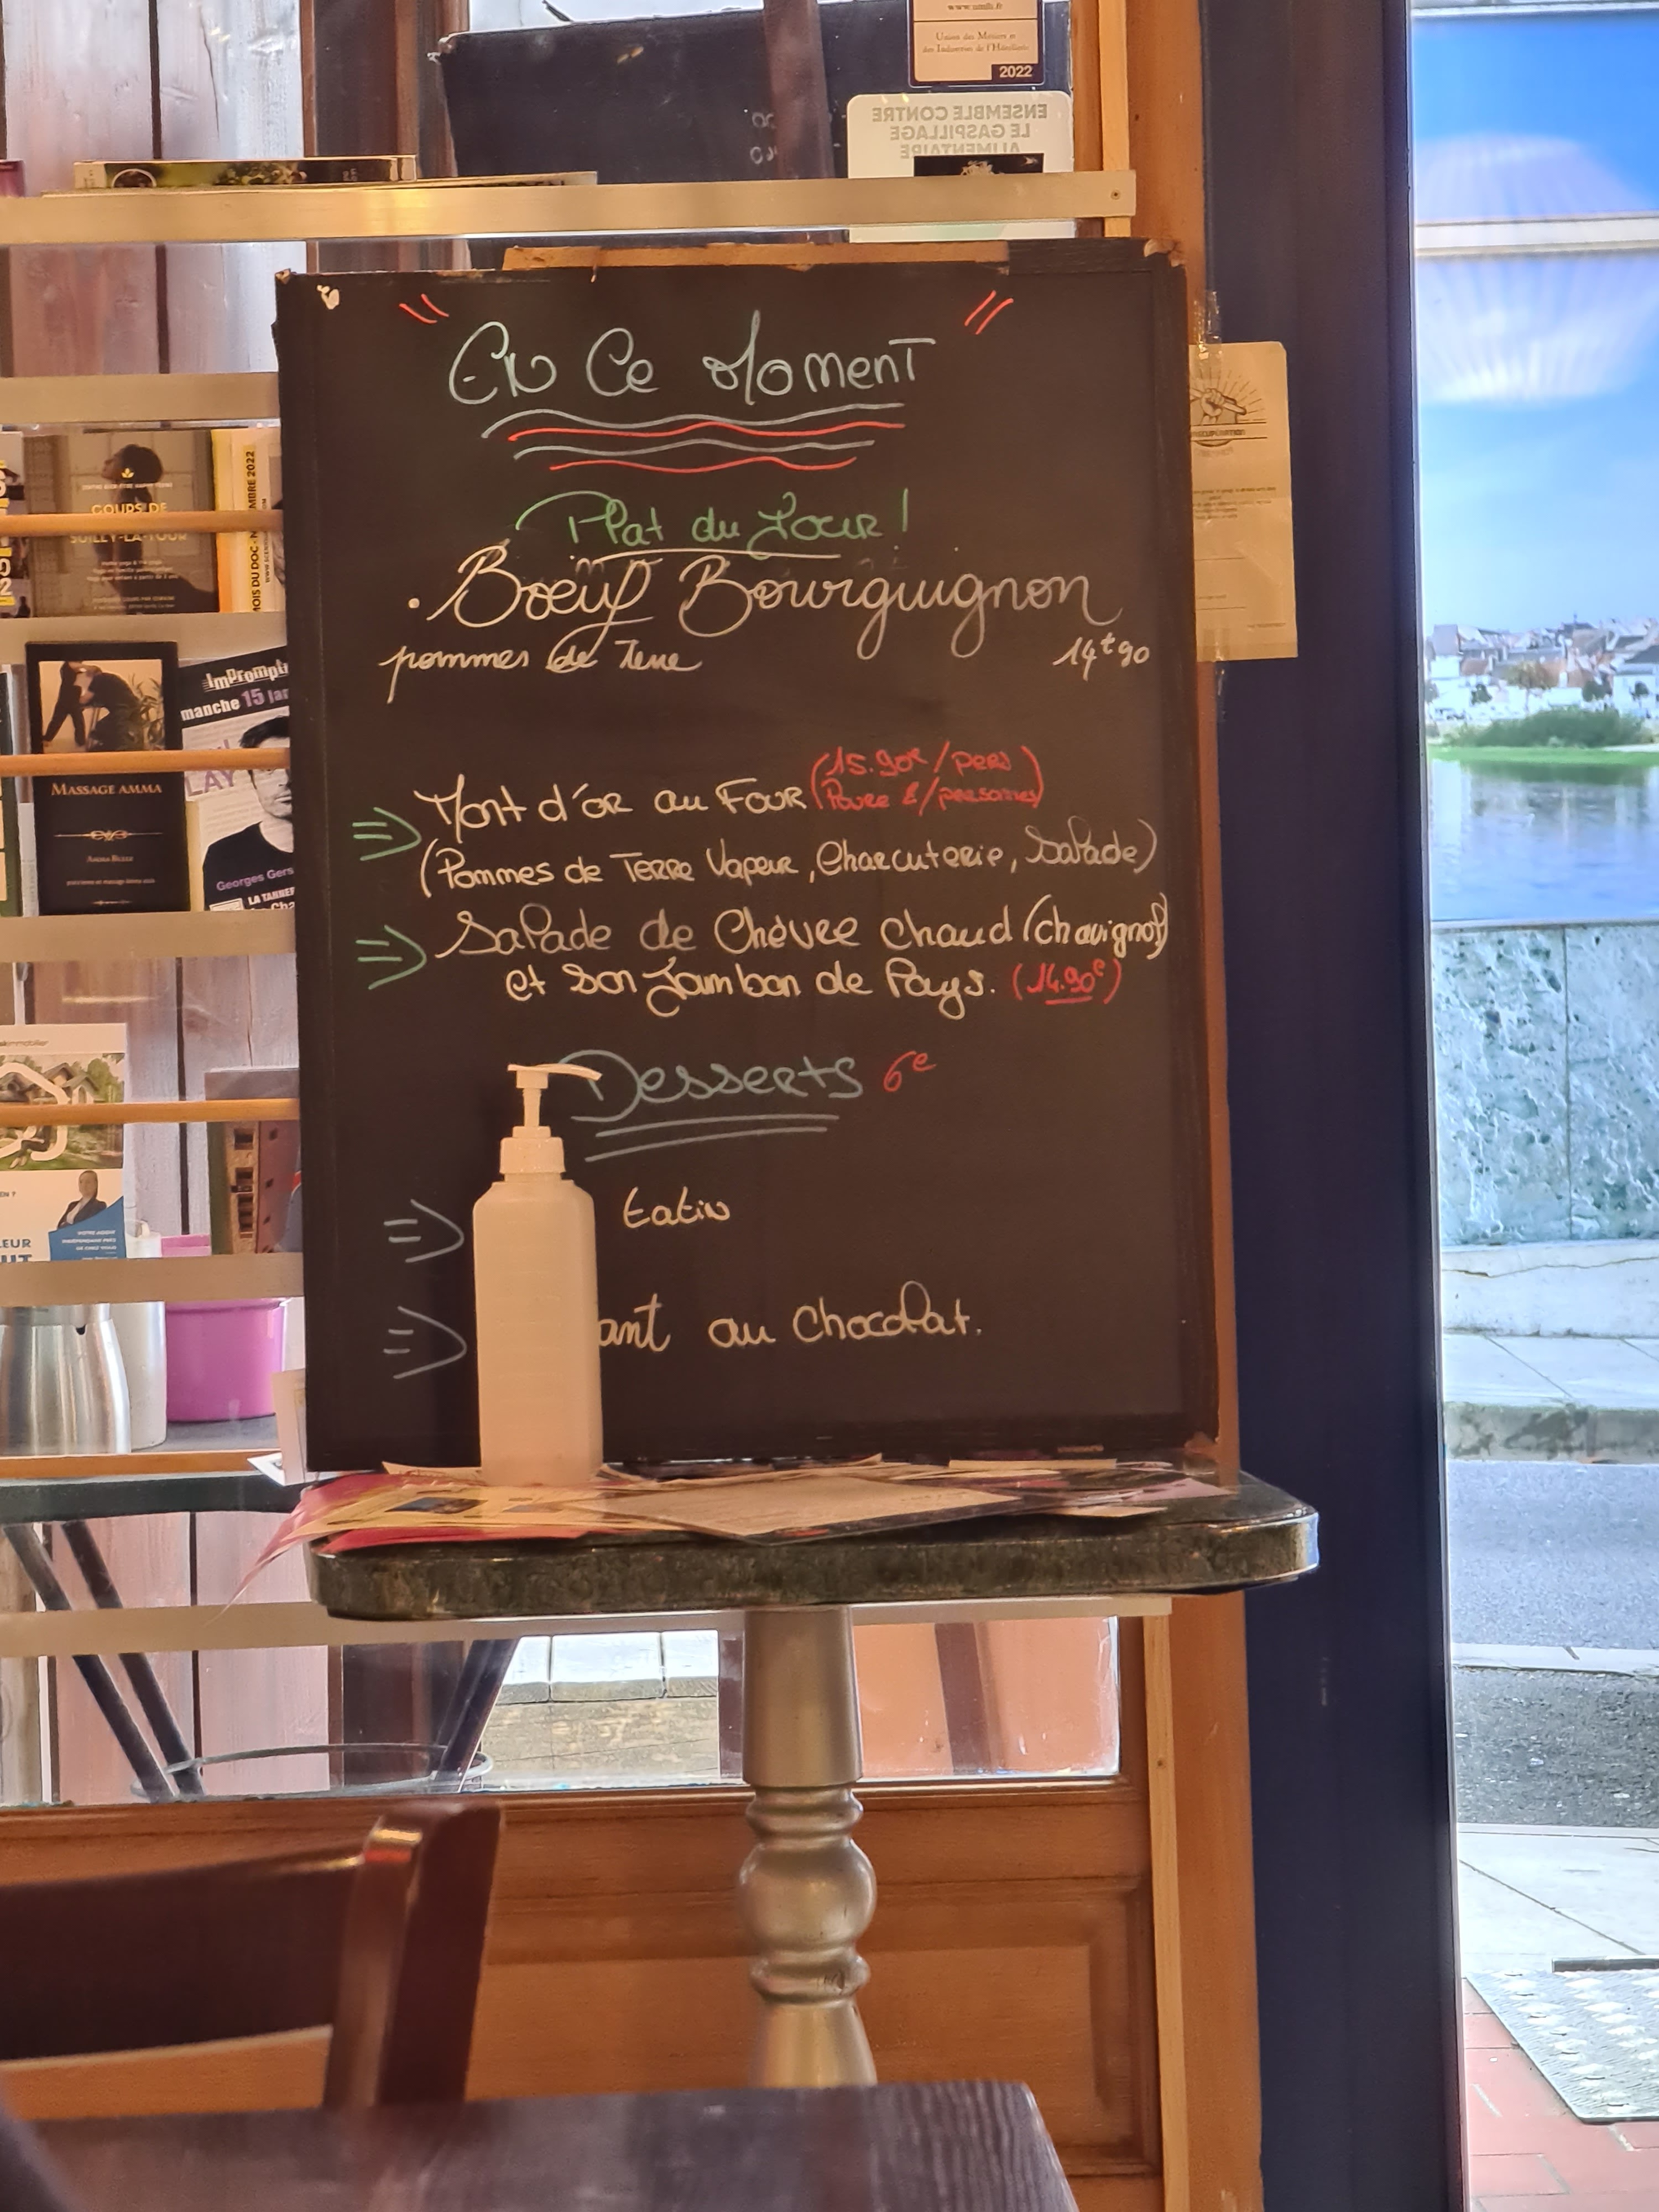 www.umih.fr
Union des Métiers et
des Industries de l'Hôtellerie
2022
ENSEMBLE CONTRE
LE GASPILLAGE
ALIMENTAIRE
" En Ce Moment "
Plat du Jour !
. Boeuf Bourguignon
pommes de Terre 14€90
=> Mont d'or au Four (15.90€/pers
Pour 2/personnes)
(Pommes de Terre Vapeur, Charcuterie, Salade)
=> Salade de Chèvre Chaud (chavignol)
et son Jambon de Pays. (14.90€)
Desserts 6€
=> tatin
=> ant au chocolat.
COURS DE
SUILLY-LA-TOUR
MOIS DU DOC - N
MBRE 2022
MASSAGE AMMA
Impromptu
manche 15 jan
LAY
Georges Gers
LA TANNER
immobilier
LEUR